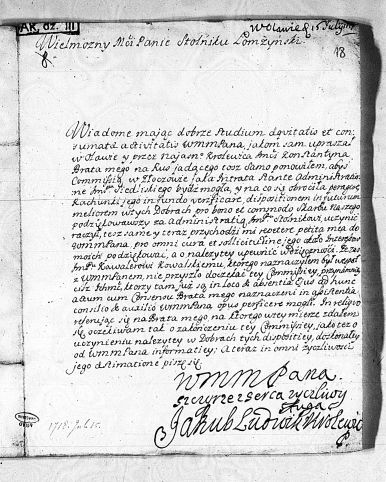 AR. dz. III
w Oławie d. 15 Julij
18
Wielmozny Mói Panie Stolniku Łomżyński.
Wiadome maiąc dobrze Studium dexteritatis et con,
sumata activitatis WMMPana, iakom sam upraszał
w Oławie y przez Naiasn. Krolewica Imci Konstantyna
Brata mego na Rus iadącego toż Samo ponowiłem, abyś
Commissią w Złoczowie iaka Intrata Stante Administratione
Imci Siedliskiego bydz mogła, y na co się obrociła
Rachunki iego in fundo verificare, dispositionem in futurum
meliorem w tych Dobrach pro bono et commodo Skarbu Naszego
podziękowawszy za administratią Imci Stolnikowi, uczynic
raczył, tesz same y teraz przychodzi mi repetere petita mea do
WMMPana, pro omni cura et sollicitudine iego
moich podziękował, a o należytey upewnic wdzięcznosci.
Imci Kawalerski Kowalskiemu, ktorego naznaczyłem bydz
z WMMPanem, nie przyszło doczekac tey Commissiey,
Ichmci, ktorzy tam iuż są in loco & absentia eius ad hunc
actum cum Consensu Brata mego naznaczeni in assistentia
consilio & auxilio WMMPana opus perficere mogli. In reliquo
referuiąc się na Brata mego, na ktorego wrey mierze zdałem
się, oczekiwam tak o zakończeniu tey Commissiey, iako też o
uczynieniu należytey w Dobrach tych dispositiey, doskonałey
od WMMPana informatiey; A teraz in omni życzliwosci
iego d'Estimatione piszę się
WMMPana
szczyrze z serca życzliwy
sługa
Jakub Ludwik Krolewic
1718. Jul. 15.